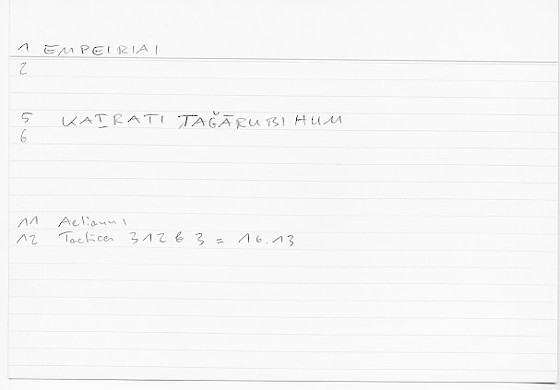 1 EMPEIRIAI
2
5 KAṮRATI TAǦĀRUBIHUM
6
11 Aelianus
12 Tactica 312 b 3 = 16.13